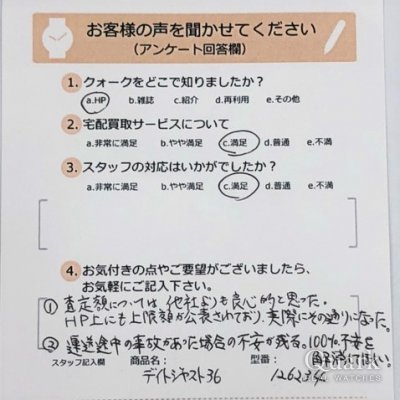 お客様の声を聞かせてください
(アンケート回答欄)
1. クォークをどこで知りましたか？
a.HP b.雑誌 c.紹介 d.再利用 e.その他
2. 宅配買取サービスについて
a.非常に満足 b.やや満足 c.満足 d.普通 e.不満
3. スタッフの対応はいかがでしたか？
a.非常に満足 b.やや満足 c.満足 d.普通 e.不満
4. お気付きの点やご要望がございましたら、
お気軽にご記入下さい。
① 査定額については他社よりも良心的と思った。
HP上にも上限額が公表されており、実際にその通りになった。
② 運送途中の事故があった場合の不安が残る。100%不安を
解消してほしい。
スタッフ記入欄 商品名： 型番：
デイトジャスト36
Quark
WATCHES